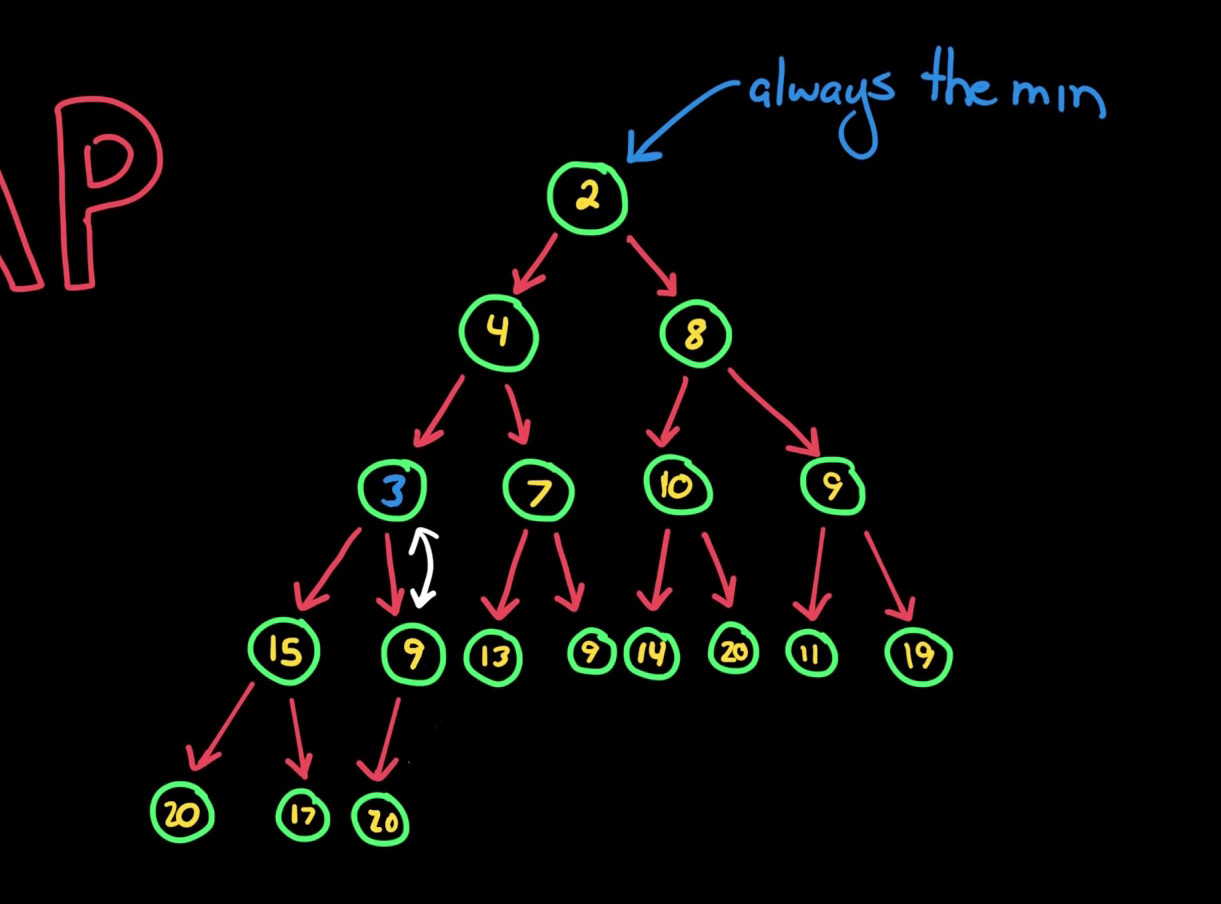 AP
always the min
2
4 8
3 7 10 9
15 9 13 9 14 20 11 19
20 17 20